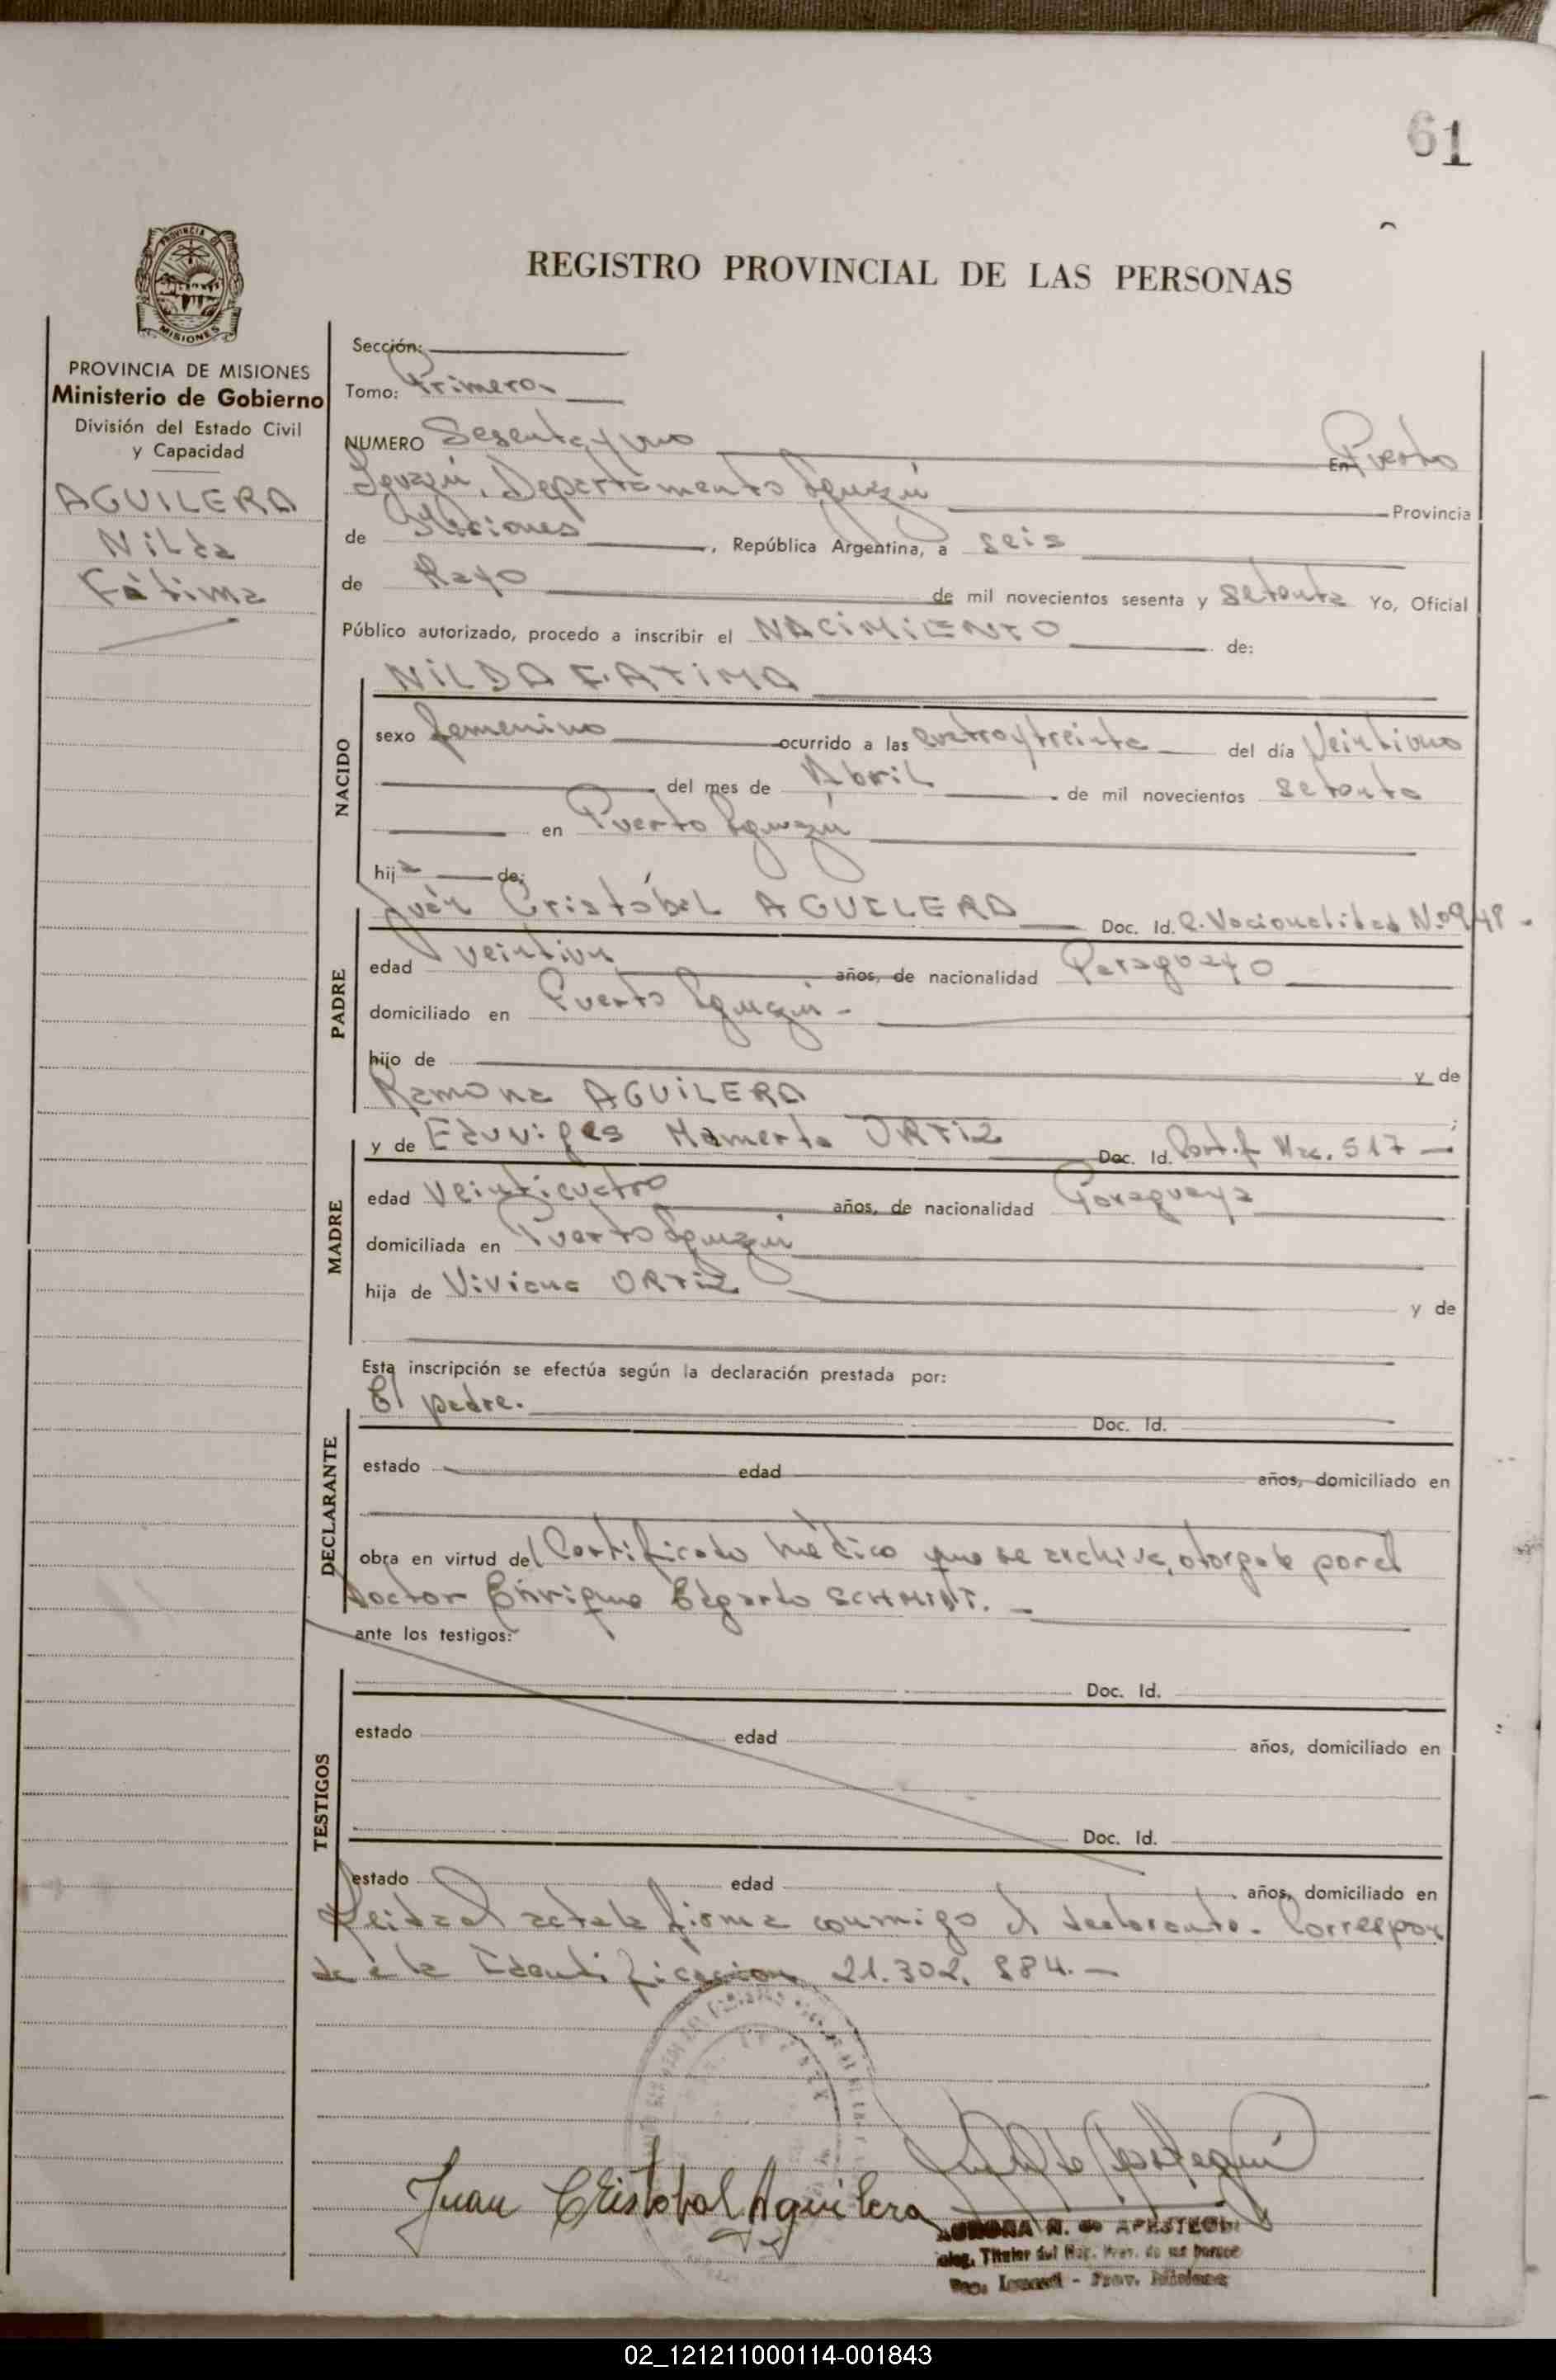 61
PROVINCIA DE
MISIONES
REGISTRO PROVINCIAL DE LAS PERSONAS
PROVINCIA DE MISIONES
Ministerio de Gobierno
División del Estado Civil
y Capacidad
AGUILERA
Nilda
Fátima
Sección:
Tomo: Primero
NUMERO Sesenta y uno En Puerto
Iguazú, Departamento Iguazú Provincia
de Misiones, República Argentina, a seis
de Mayo de mil novecientos sesenta y setenta Yo, Oficial
Público autorizado, procedo a inscribir el NACIMIENTO de:
NACIDO
NILDA FATIMA
sexo femenino ocurrido a las cuatro y treinta del día Veintiuno
del mes de Abril de mil novecientos setenta
en Puerto Iguazú
hija de:
PADRE
Juan Cristóbal AGUILERA Doc. Id. C. Nacionalidad Nº 948 -
edad veintiun años, de nacionalidad Paraguayo
domiciliado en Puerto Iguazú -
hijo de y de
Ramona AGUILERA
MADRE
y de Eduviges Mamerta ORTIZ Doc. Id. Certif Nac. 517 -
edad Veinticuatro años, de nacionalidad Paraguaya
domiciliada en Puerto Iguazú
hija de Viviana ORTIZ y de
Esta inscripción se efectúa según la declaración prestada por:
DECLARANTE
El padre. Doc. Id.
estado edad años, domiciliado en
obra en virtud del Certificado médico que se archiva, otorgado por el
Doctor Enrique Edgardo SCHMIDT. -
ante los testigos:
TESTIGOS
Doc. Id.
estado edad años, domiciliado en
Doc. Id.
estado edad años, domiciliado en
Leida el acta la firma conmigo el declarante. Correspon
de a la Identificacion 21.302.984. -
Juan Cristobal Aguilera
AURORA M. de APESTEGUI
02_121211000114-001843